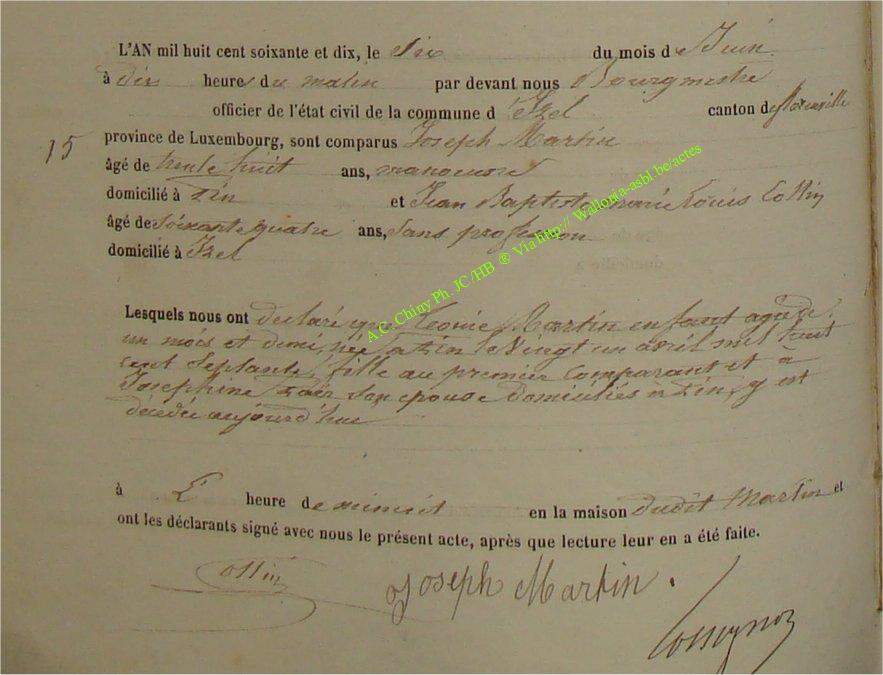 L'AN mil huit cent soixante et dix, le six du mois de Juin
à dix heures du matin par devant nous Bourgmestre
officier de l'état civil de la commune d'Izel canton de Florenville
15 province de Luxembourg, sont comparus Joseph Martin
âgé de trente huit ans, manoeuvre
domicilié à Pin et Jean Baptiste marie Louis Collin
âgé de soixante quatre ans, sans profession
domicilié à Izel
A.C. Chiny Ph. JC/HB ® Via http:// Wallonia-asbl.be/actes
Lesquels nous ont declaré que Leonie Martin enfant agée de
un mois et demi, née a Pin le vingt un avril mil huit
cent Septante, fille au premier Comparant et à
Josephine son epouse Domiciliés à Pin, y est
décédée aujourd'hui
à L' heure de minuit en la maison dudit Martin et
ont les déclarants signé avec nous le présent acte, après que lecture leur en a été faite.
Collin Joseph Martin.